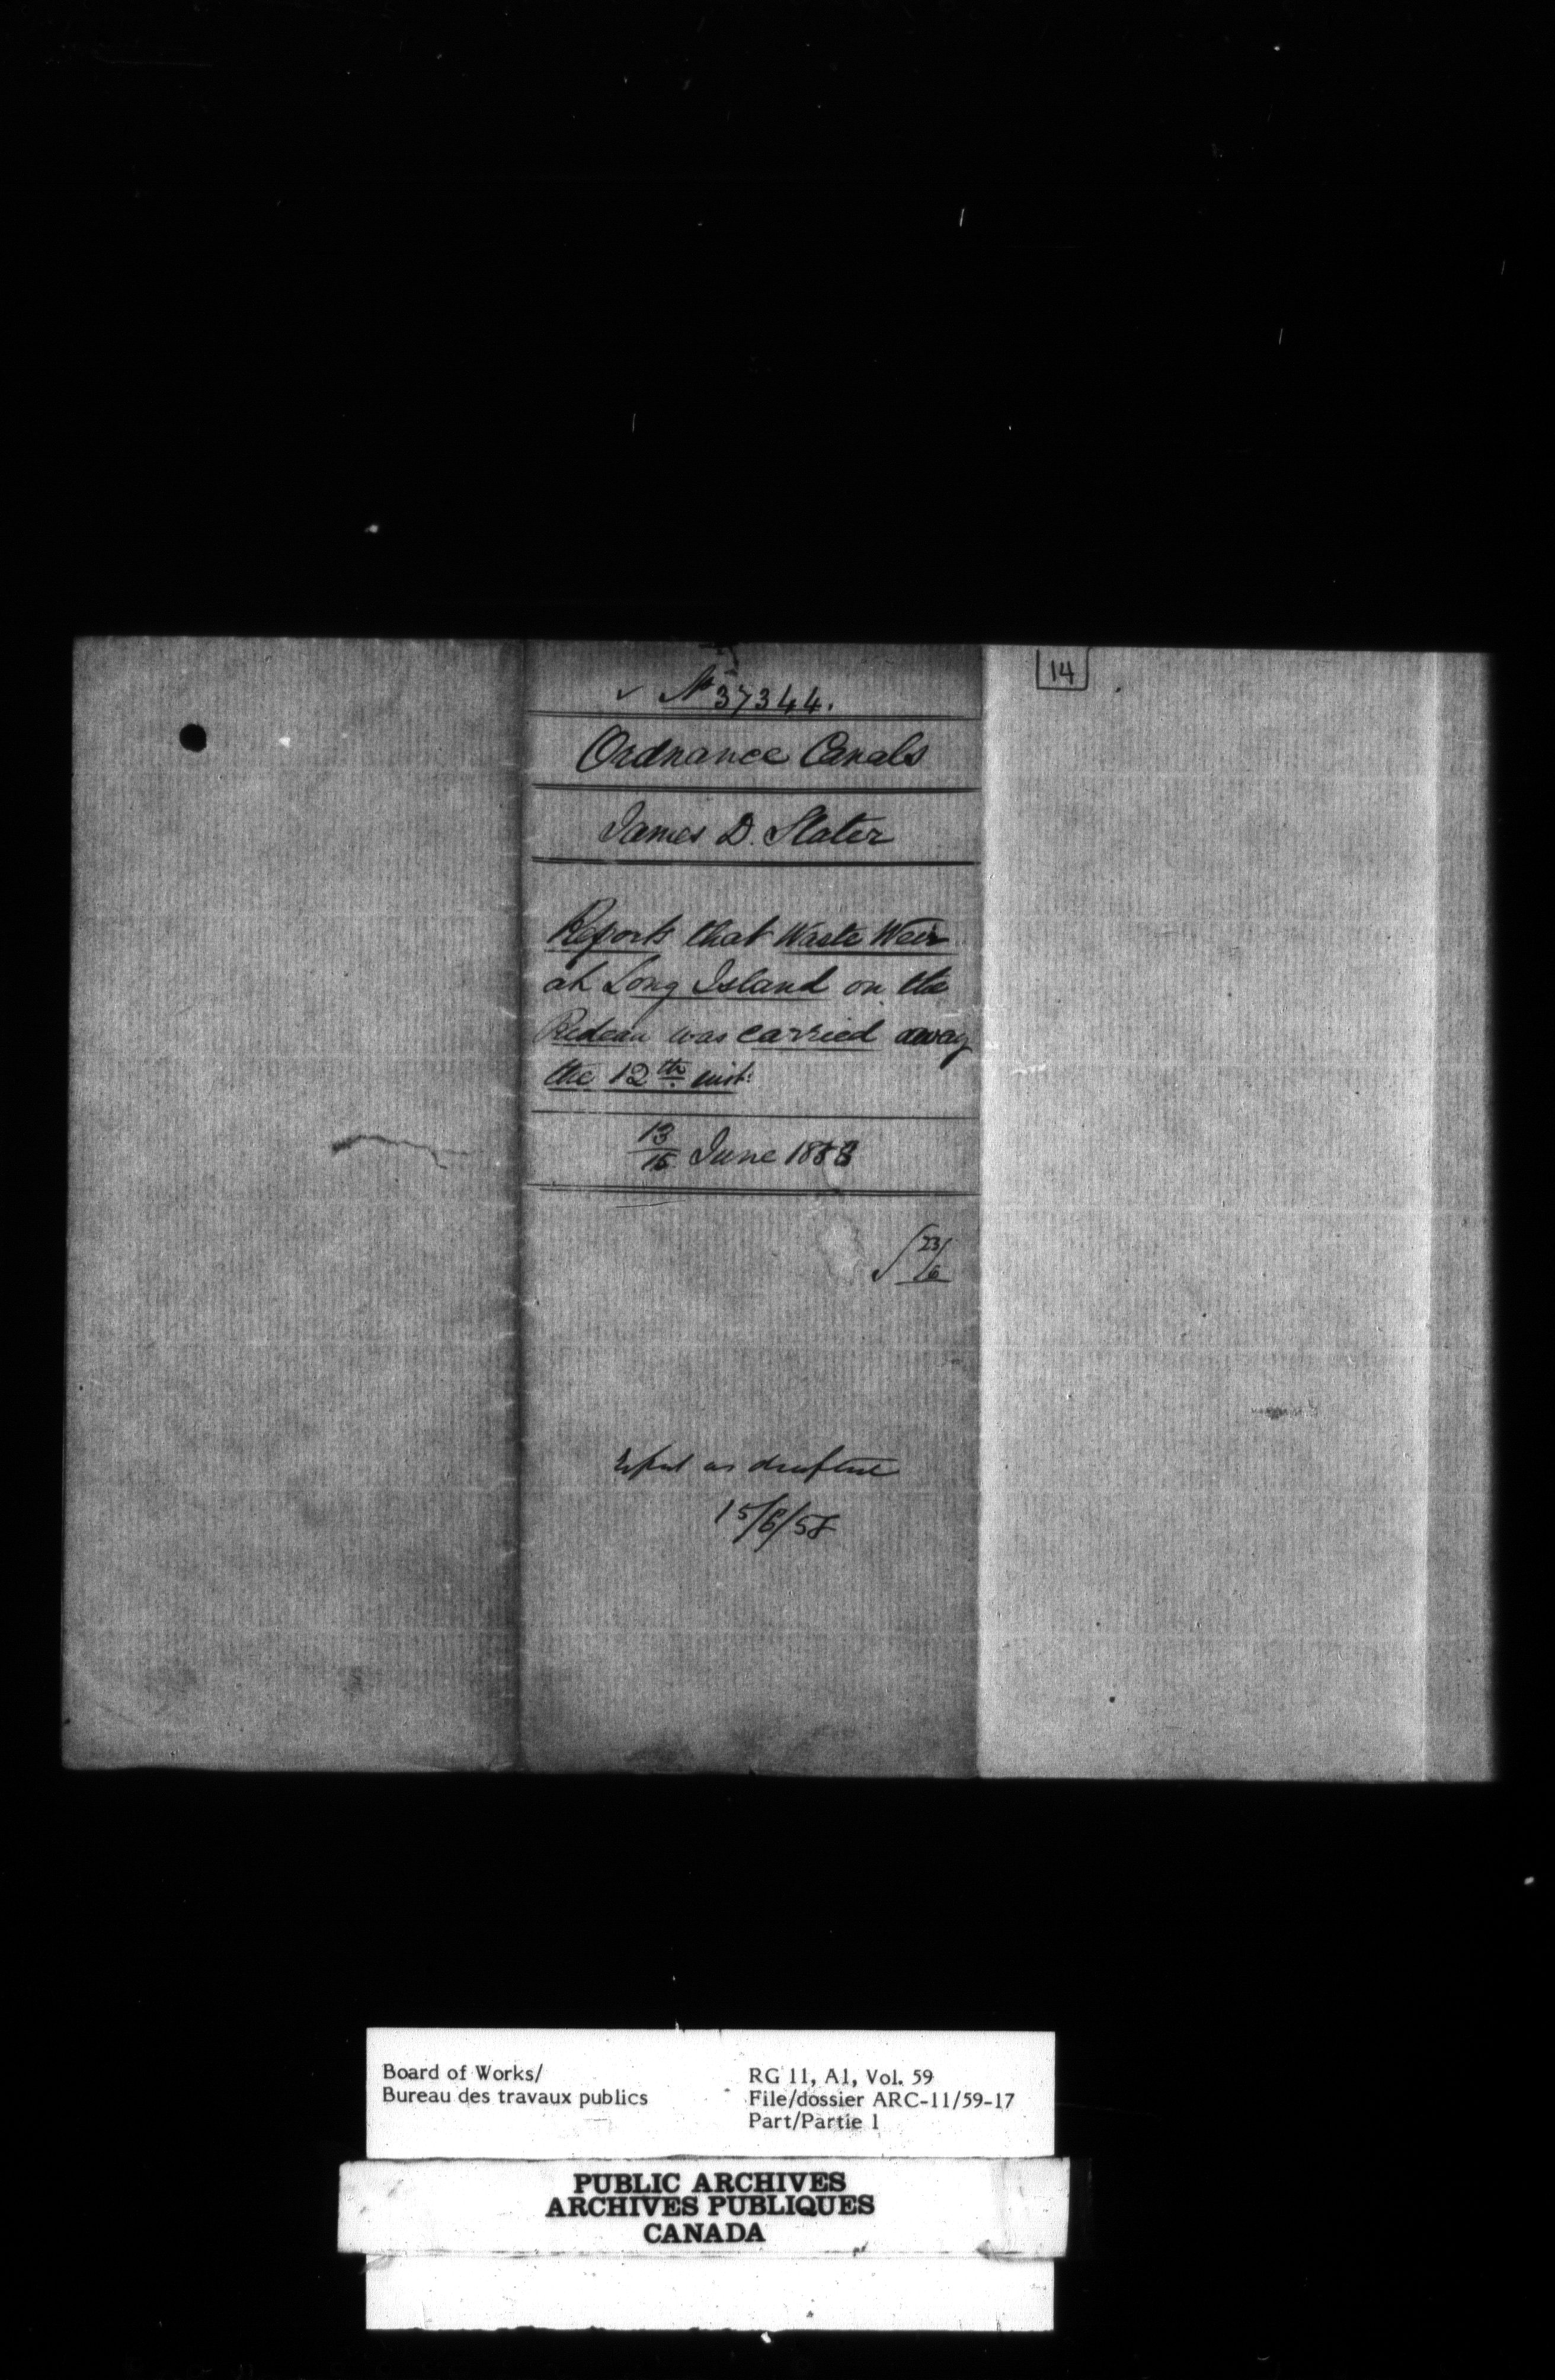 14
✓ No 37344.
Ordnance Canals
James D. Slater
Reports that Waste Weir
at Long Island on the
Redeau was carried away
the 12th inst:
13/15 June 1858
23/6
as
15/6/58
Board of Works/
Bureau des travaux publics
RG 11, A1, Vol. 59
File/dossier ARC-11/59-17
Part/Partie 1
PUBLIC ARCHIVES
ARCHIVES PUBLIQUES
CANADA